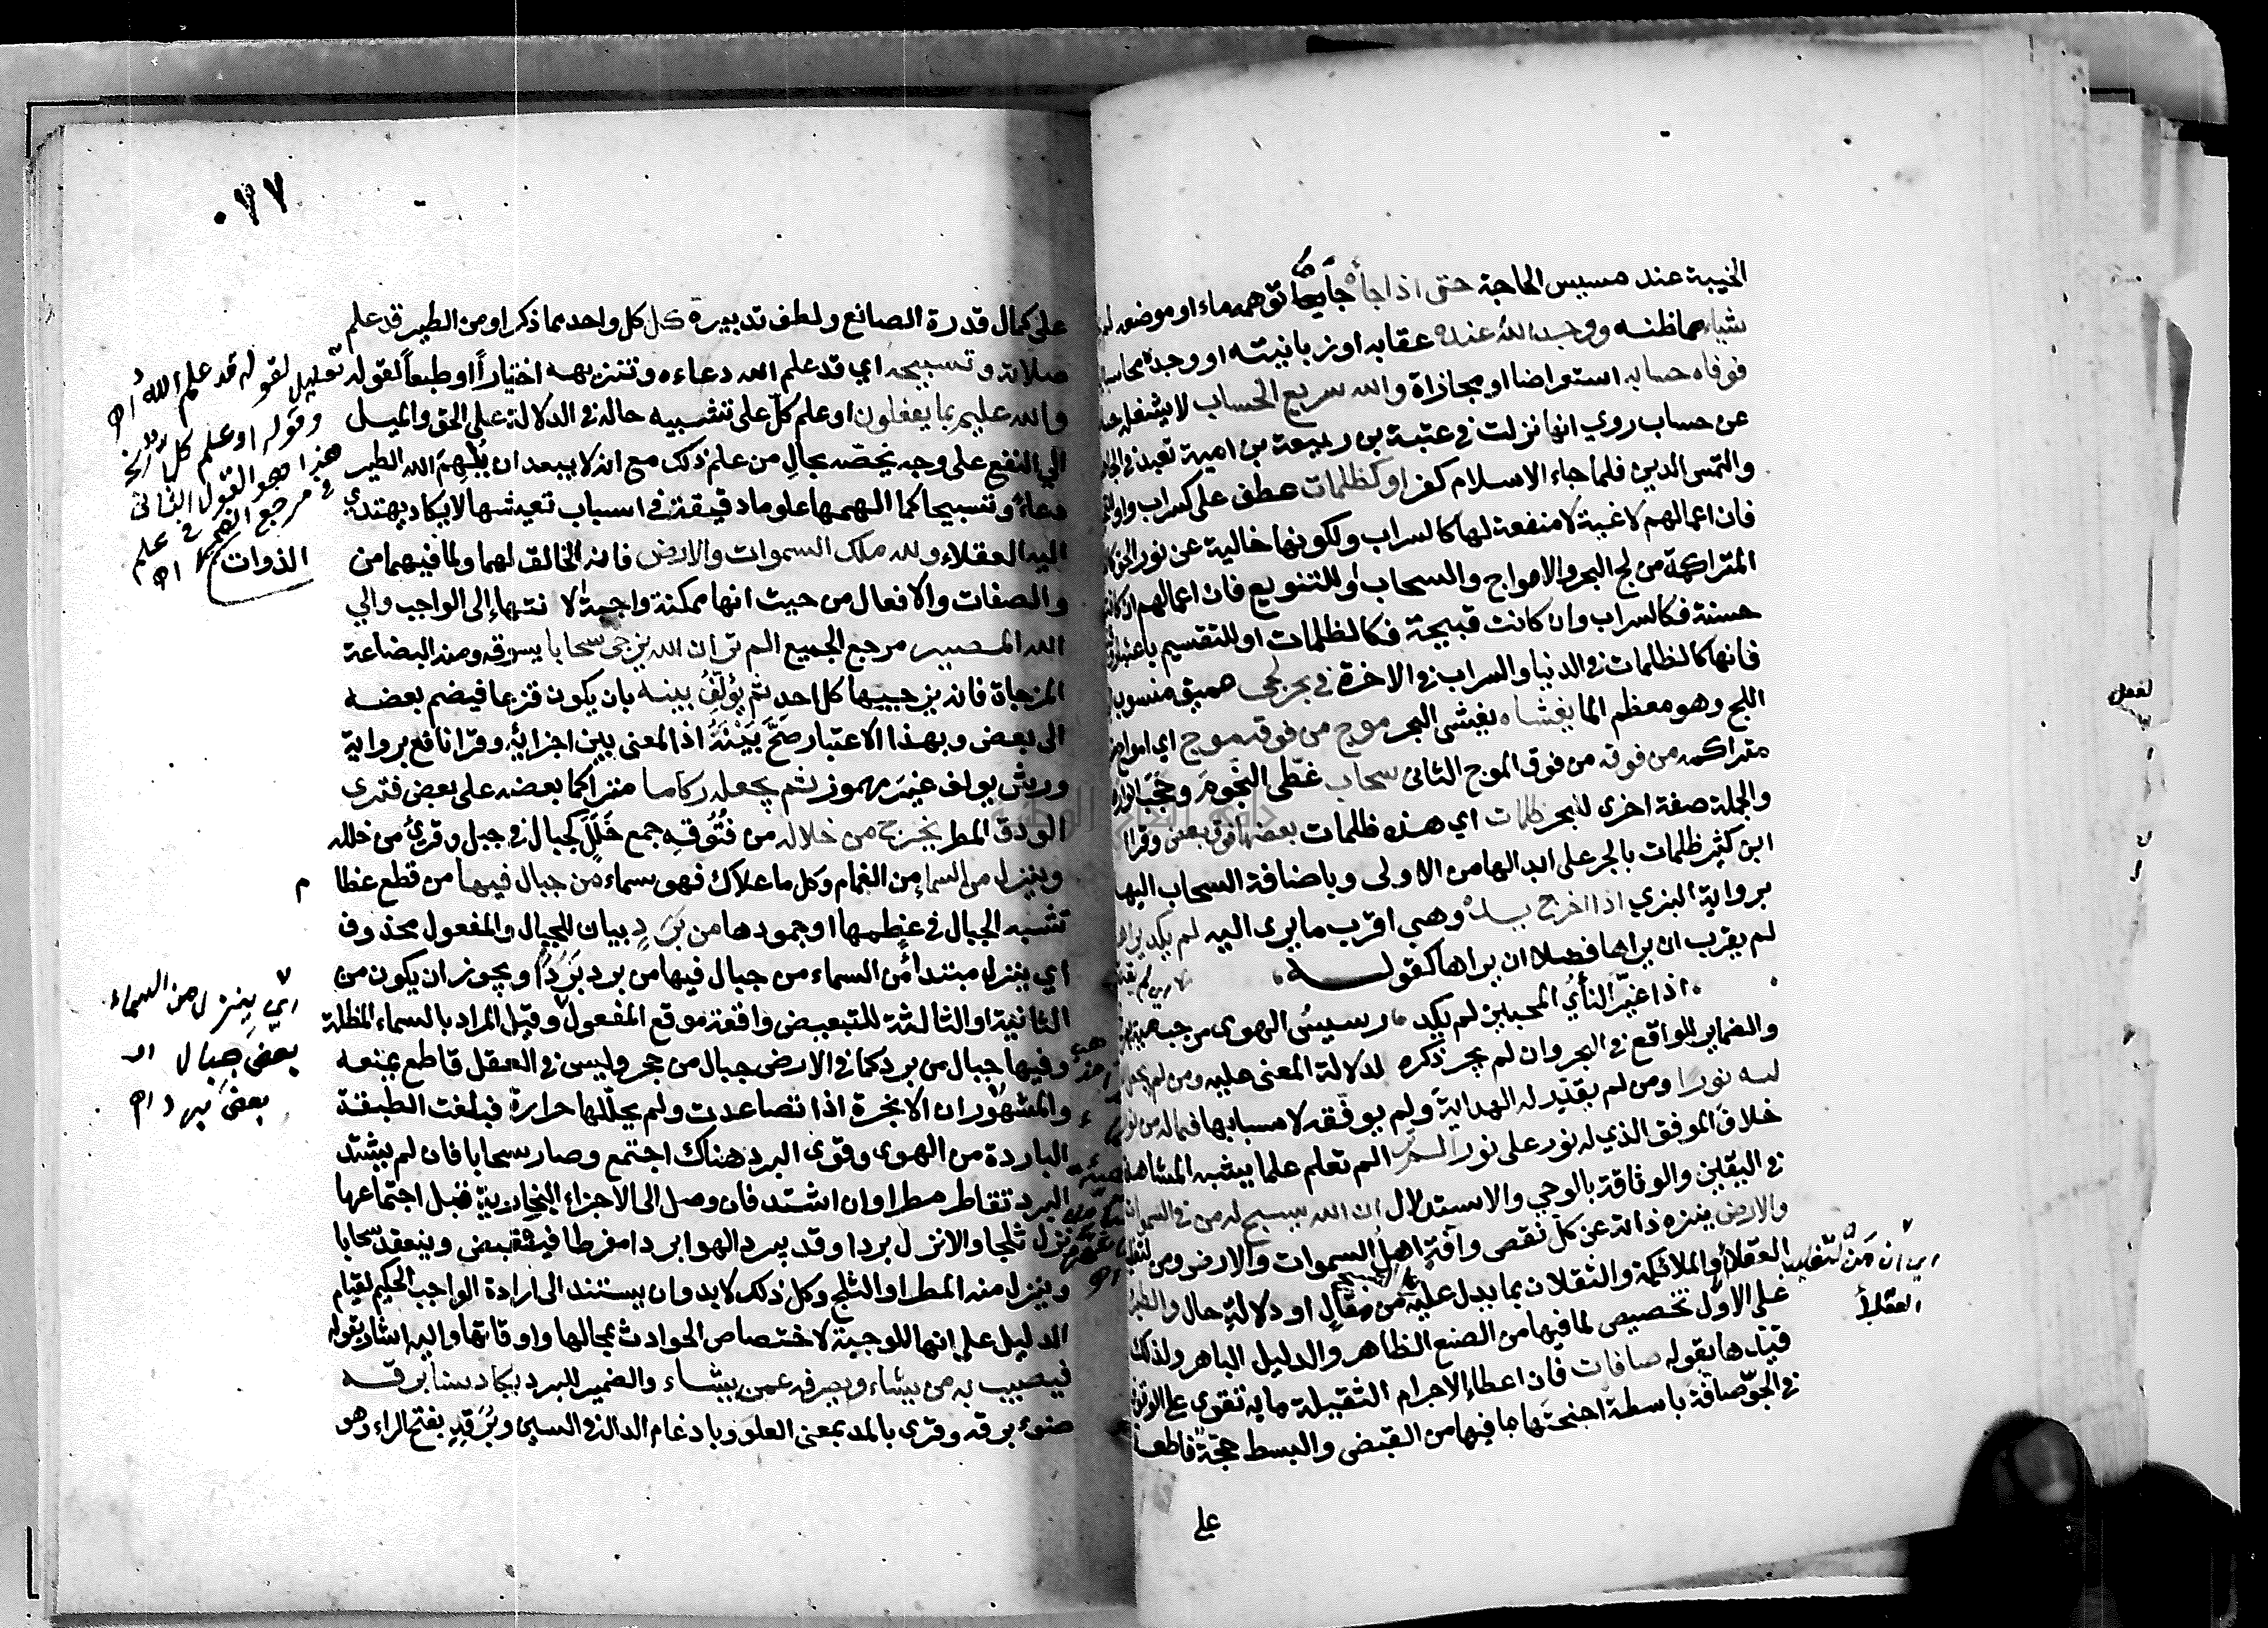 الخيبة عند مسيس الحاجة حتى اذا جاءه جاء ما توهمه ماء او موضعه لم
شيئا مما ظنه ووجد الله عنده عقابه او زبانيته او وجده محاسبا
فوفاه حسابه استعراضا او مجازاة والله سريع الحساب لا يشغله
عن حساب روي انها نزلت في عتبة بن ربيعة بن امية تعبد في
والتمس الدين فلما جاء الاسلام كفر او كظلمات عطف على كسراب واو
فان اعمالهم لاغية لا منفعة لها كالسراب ولكونها خالية عن نور الحق
المتراكمة من لج البحر والامواج والسحاب او للتنويع فان اعمالهم ان كانت
حسنة فكالسراب وان كانت قبيحة فكالظلمات او للتقسيم باعتبار
فانها كالظلمات في الدنيا والسراب في الاخرة في بحر لجي عميق منسوب
اللج وهو معظم الما يغشاه يغشى البحر موج من فوقه موج اي امواج
متراكمه من فوقه من فوق الموج الثاني سحاب غطى النجوم وحجب انوارها
والجملة صفة اخرى للبحر ظلمات اي هذه ظلمات بعضها فوق بعض وقرا
ابن كثير ظلمات بالجر على ابدالها من الاولى وباضافة السحاب اليها
برواية البزي اذا اخرج يده وهي اقرب ما يرى اليه لم يكد يراها
لم يقرب ان يراها فضلا ان يراها كقوله
اذا غير النأي المحبين لم يكد رسيس الهوى من حب مية
والضماير للواقع في البحر وان لم يجر ذكره لدلالة المعنى عليه ومن لم يجعل
له نورا ومن لم يقدر له الهداية ولم يوفقه لاسبابها فما له من نور
خلاف الموفق الذي له نور على نور الم تر الم تعلم علما يشبه المشاهدة
في اليقين والوثاقة بالوحي والاستدلال ان الله يسبح له من في السموات
والارض ينزه ذاته عن كل نقص وآفة اهل السموات والارض ومن لتغليب
العقلاء او الملائكة والثقلان بما يدل عليه من مقال او دلالة حال والطير
على الاول تخصيص لما فيها من الصنع الظاهر والدليل الباهر ولذلك
قيدها بقوله صافات فان اعطاء الاجرام الثقيلة ما به تقوى على الوقوف
في الجو صافة باسطة اجنحتها بما فيها من القبض والبسط حجة قاطعة
على
اي ان من لتغليب
العقلاء
٠٧٧
على كمال قدرة الصانع ولطف تدبيره كل كل واحد مما ذكر او من الطير قد علم
صلاته وتسبيحه اي قد علم الله دعاءه وتنزيهه اختياراً او طبعاً لقوله
والله عليم بما يفعلون او علم كل على تشبيه حاله في الدلالة على الحق والميل
الي النفع على وجه يخصه بحال من علم ذلك مع انه لا يبعد ان يلهم الله الطير
دعاءً وتسبيحا كما الهمها علوما دقيقة في اسباب تعيشها لا يكاد يهتدي
اليه العقلاء ولله ملك السموات والارض فانه الخالق لهما ولما فيهما من
والصفات والافعال من حيث انها ممكنة واجبة الانتهاء الى الواجب والي
الله المصير مرجع الجميع الم تر ان الله يزجي سحابا يسوقه ومنه البضاعة
المزجاة فانه يزجيها كل احد ثم يؤلف بينه بان يكون قزعا فيضم بعضه
الى بعض وبهذا الاعتبار صح بينه اذ المعنى بين اجزائه وقرا نافع برواية
ورش يولف غير مهموز ثم يجعله ركاما متراكما بعضه على بعض فترى
الودق المطر يخرج من خلاله من فتوقه جمع خلل كجبال في جبل وقرئ من خلله
وينزل من السماء من الغمام وكل ما علاك فهو سماء من جبال فيها من قطع عظام
تشبه الجبال في عظمها او جمودها من برد بيان للجبال والمفعول محذوف
اي ينزل مبتدأ من السماء من جبال فيها من برد برداً ويجوز ان يكون من
الثانية او الثالثة للتبعيض واقعة موقع المفعول وقيل المراد بالسماء المظلة
وفيها جبال من برد كما في الارض جبال من حجر وليس في العقل قاطع يمنعه
والمشهور ان الابخرة اذا تصاعدت ولم يحللها حرارة فبلغت الطبقة
الباردة من الهوى وقوى البرد هناك اجتمع وصار سحابا فان لم يشتد
البرد تقاطر مطرا وان اشتد فان وصل الى الاجزاء البخارية قبل اجتماعها
نزل ثلجا والا نزل بردا وقد يبرد الهوا بردا مفرطا فينقبض وينعقد سحابا
وينزل منه المطر او الثلج وكل ذلك لا بد وان يستند الى ارادة الواجب الحكيم لقيام
الدليل على انها الموجبة لاختصاص الحوادث بمحالها واوقاتها واليه اشار بقوله
فيصيب به من يشاء ويصرفه عمن يشاء والضمير للبرد يكاد سنا برقه
ضوء برقه وقرى بالمد بمعنى العلو وبادغام الدال في السين وبرقه بفتح الراء وهو
تعليل لقوله قد علم الله اه
وقوله او علم كل الخ
هذا هو القول الثاني
في مرجع الضمير في علم اه
الذوات
اي ينزل من السماء
بعض جبال
بعض برد اه